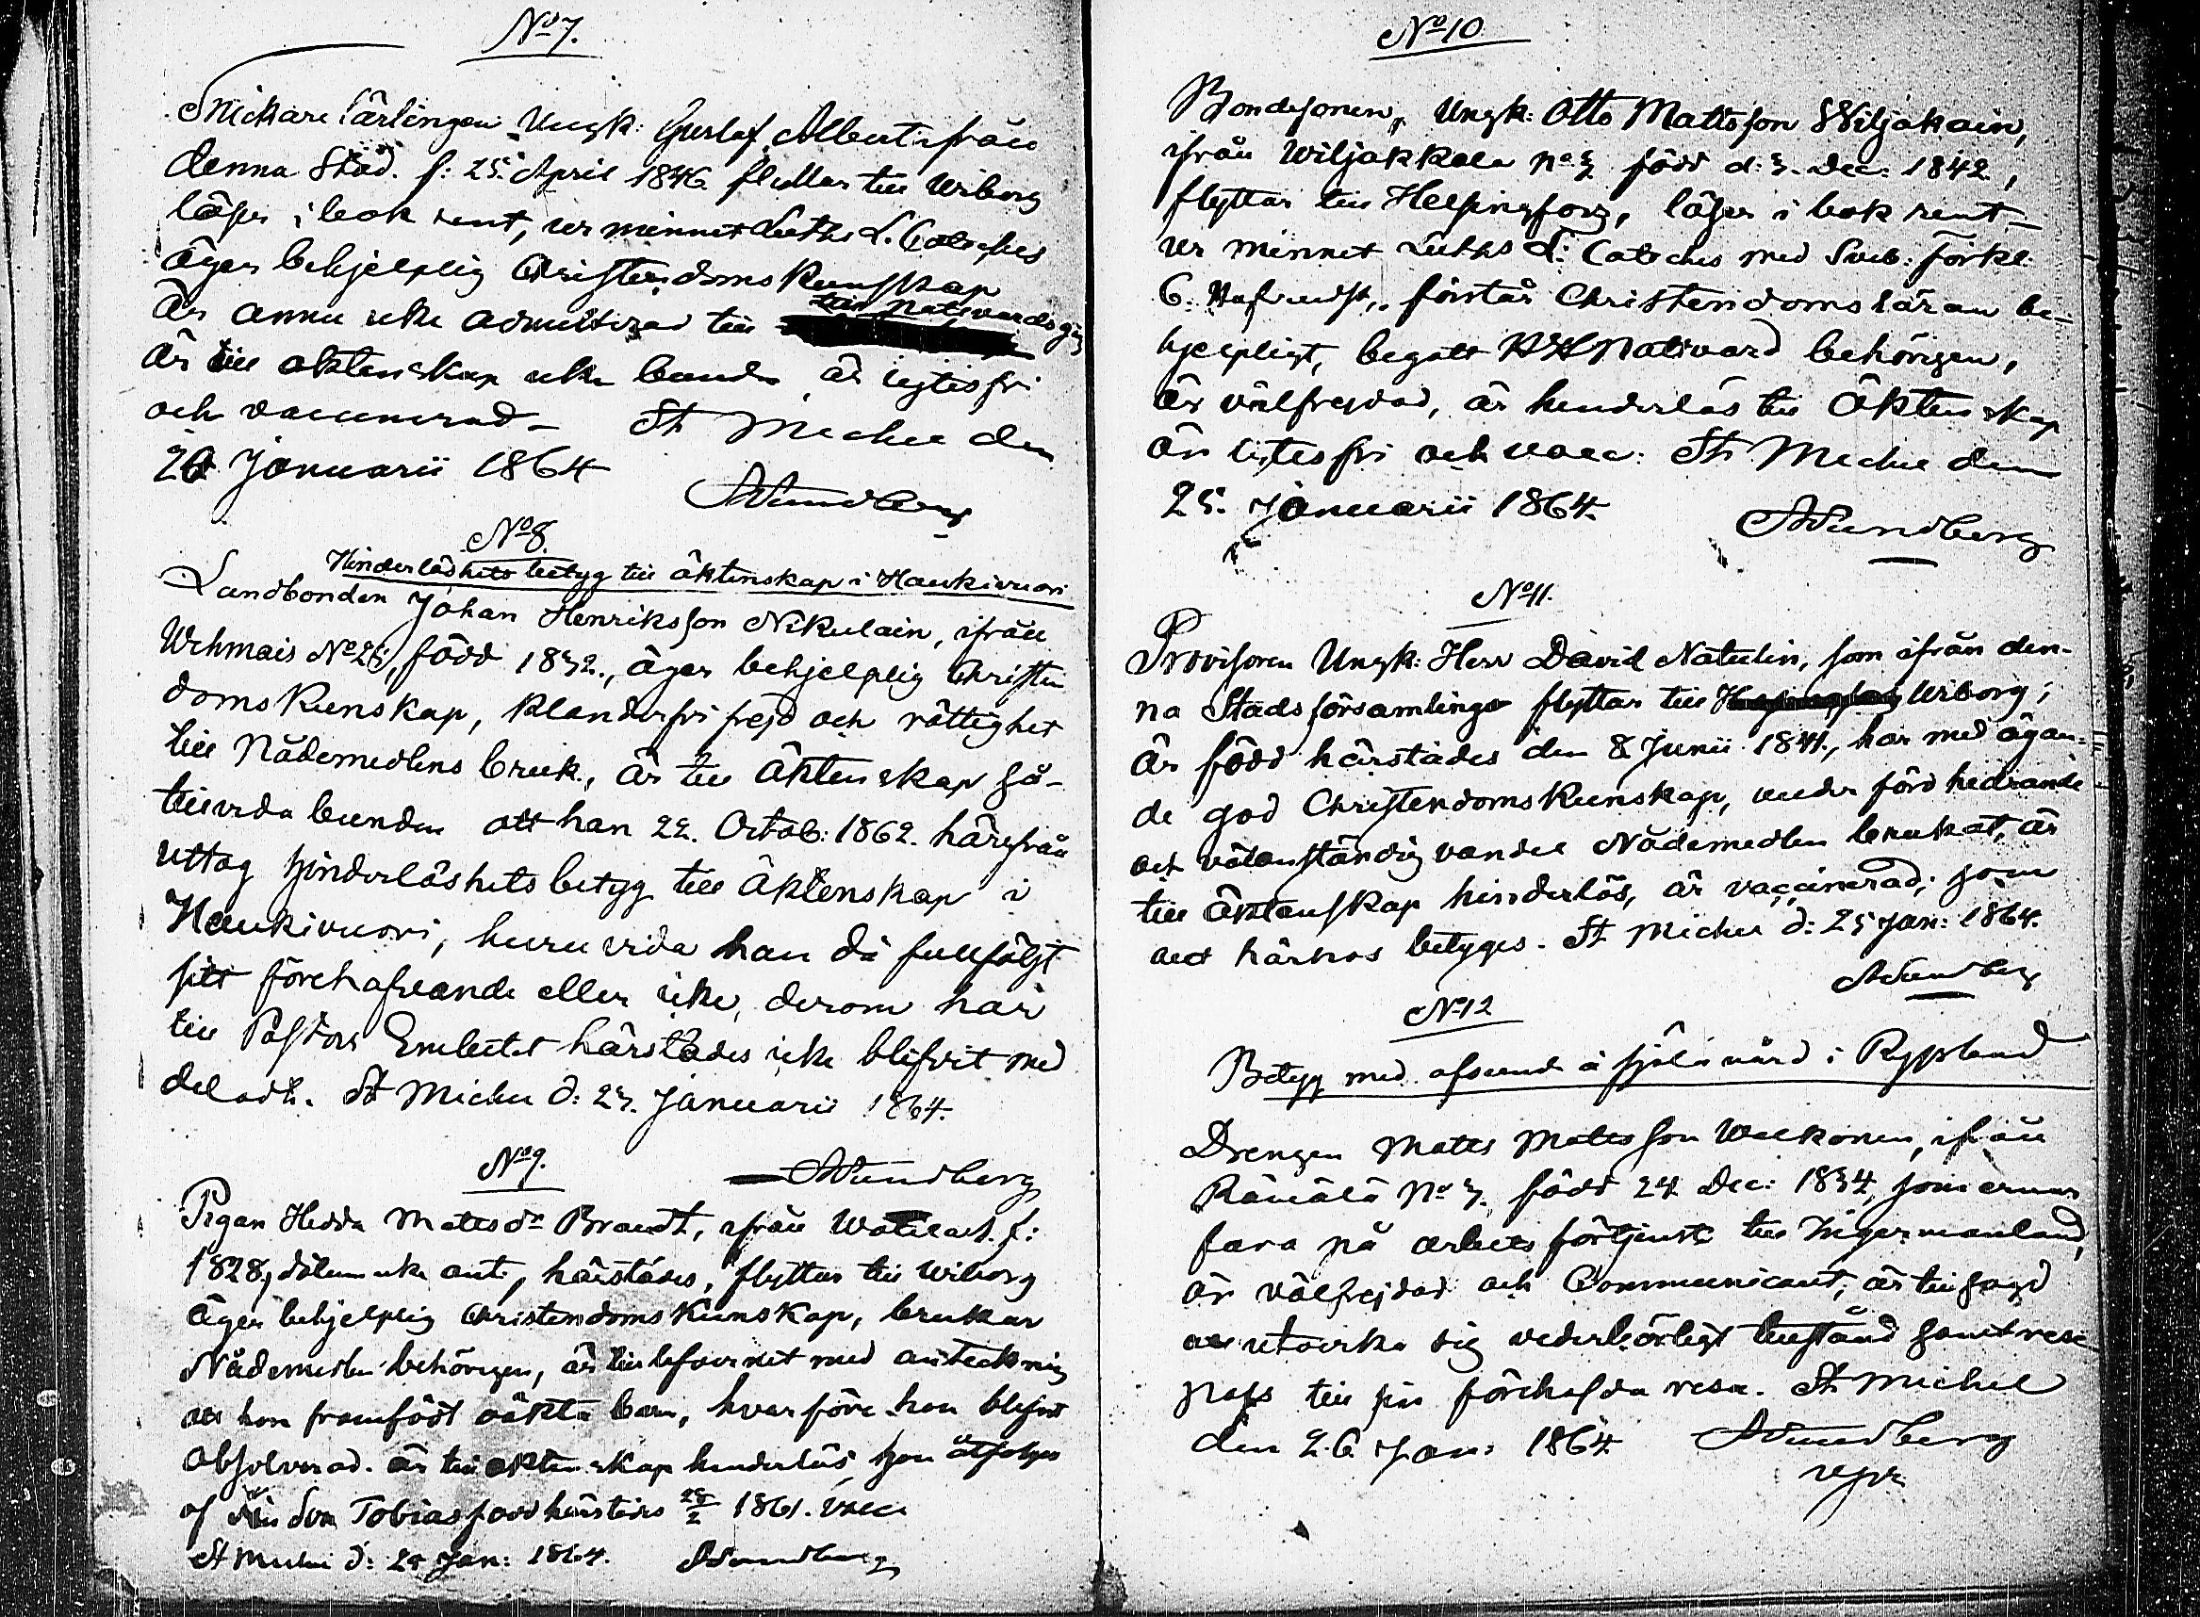 No 7.
Snickare lärlingen Ungk: Gustaf Albert ifrån
denna Stad. f: 25 April 1846 flyttar till Wiborg
läser i bok rent, ur minnet Luthers L. Cateches
äger behjelplig Christendoms Kunskap
till nattvardsgång
är ännu icke admitterad till
är till äktenskap icke bunden är lytesfri
och vaccinerad – St Michel den
20 Januarii 1864
ASundberg
No 8.
Hinderlöshets betyg till äktenskap i Haukivuori
Landbonden Johan Henriksson Nikulain, ifrån
Wehmais No 25, född 1832., äger behjelplig Christen
doms Kunskap, klanderfri frejd och rättighet
till Nådemedlens bruk, är till Äktenskap så-
tillvida bunden att han 22. Octob: 1862. härifrån
uttog hinderlöshets betyg till Äktenskap i
Haukivuori, huruvida han då fullföljt
sitt förehafvande eller icke, derom har
till Pastors Embetet härstädes icke blifvit med
deladt. St Michel d: 23. Januarii 1864.
No 9.
ASundberg
Pigan Hedda Mattsdr Brandt, ifrån f:
1828, icke ant, härstädes, flyttar till Wiborg
äger behjelplig Christendoms Kunskap, brukar
Nådemedlen behörigen, är med anteckning
att hon framfödt oäkta barn, hvarföre hon blifvit
absolverad. är till äktenskap hinderlös, hon åtföljes
af sin Son Tobias född härstädes 28/2 1861. vacc.
St Michel d: 24 Jan: 1864. ASundberg
No 10
Bondesonen, Ungk: Otto Mattsson Wiljakain,
ifrån Wiljakkala No 3 född d: 3. Dec: 1842,
flyttar till Helsingfors, läser i bok rent
ur minnet Luths L: Cateches med Sveb: förkl.
6. Hufvudst., förstår Christendomsläran be-
hjelpligt, begått HH Nattvard behörigen,
är välfrejdad, är hinderlös till Äktenskap
är lytesfri och vacc: St Michel den
25. Januarii 1864.
ASundberg
No 11.
Provisoren Ungk: Herr David Natulin, som ifrån den-
na Stadsförsamling flyttar till Wiborg,
är född härstädes den 8 Junii 1841., har med ägan-
de god Christendoms Kunskap, under förd hedrande
och välanständig vandel Nådemedlen brukat, är
till äktenskap hinderlös, är vaccinerad; som
att härhos betyges. St Michel d: 25 Jan: 1864.
ASundberg
No 12
Betyg med afseende å själavård i Ryssland
Drengen Matts Mattsson Walkonen, ifrån
Rämälä No 3. född 24 Dec: 1834, som ernar
fara på arbets förtjenst till Ingermanland,
är välfrejdad och Communicant, är tillsagd
att utvirka sig vederbörligt tillstånd samt rese
pass till sin förehafda resa. St Michel
den 26 Jan: 1864 ASundberg